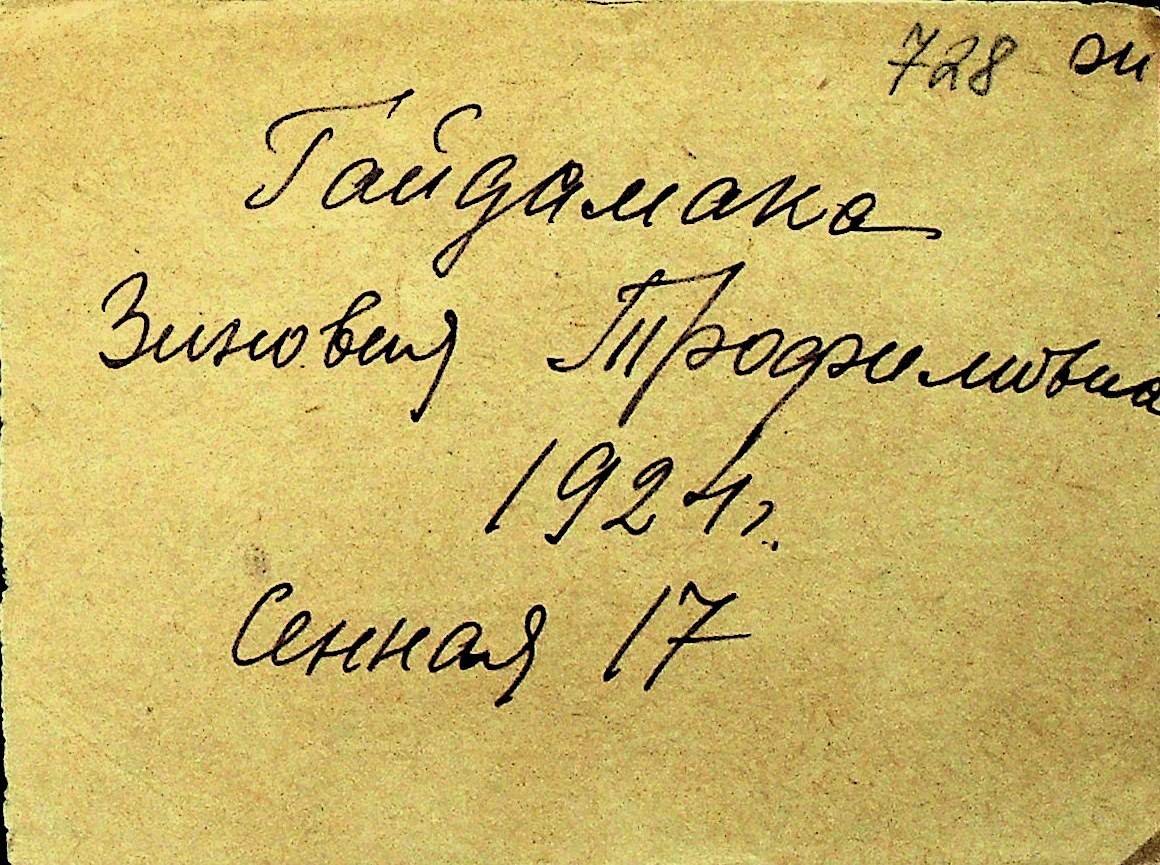 728
Гайдамака
Зиновия Трофимовна
1924г.
Сенная 17